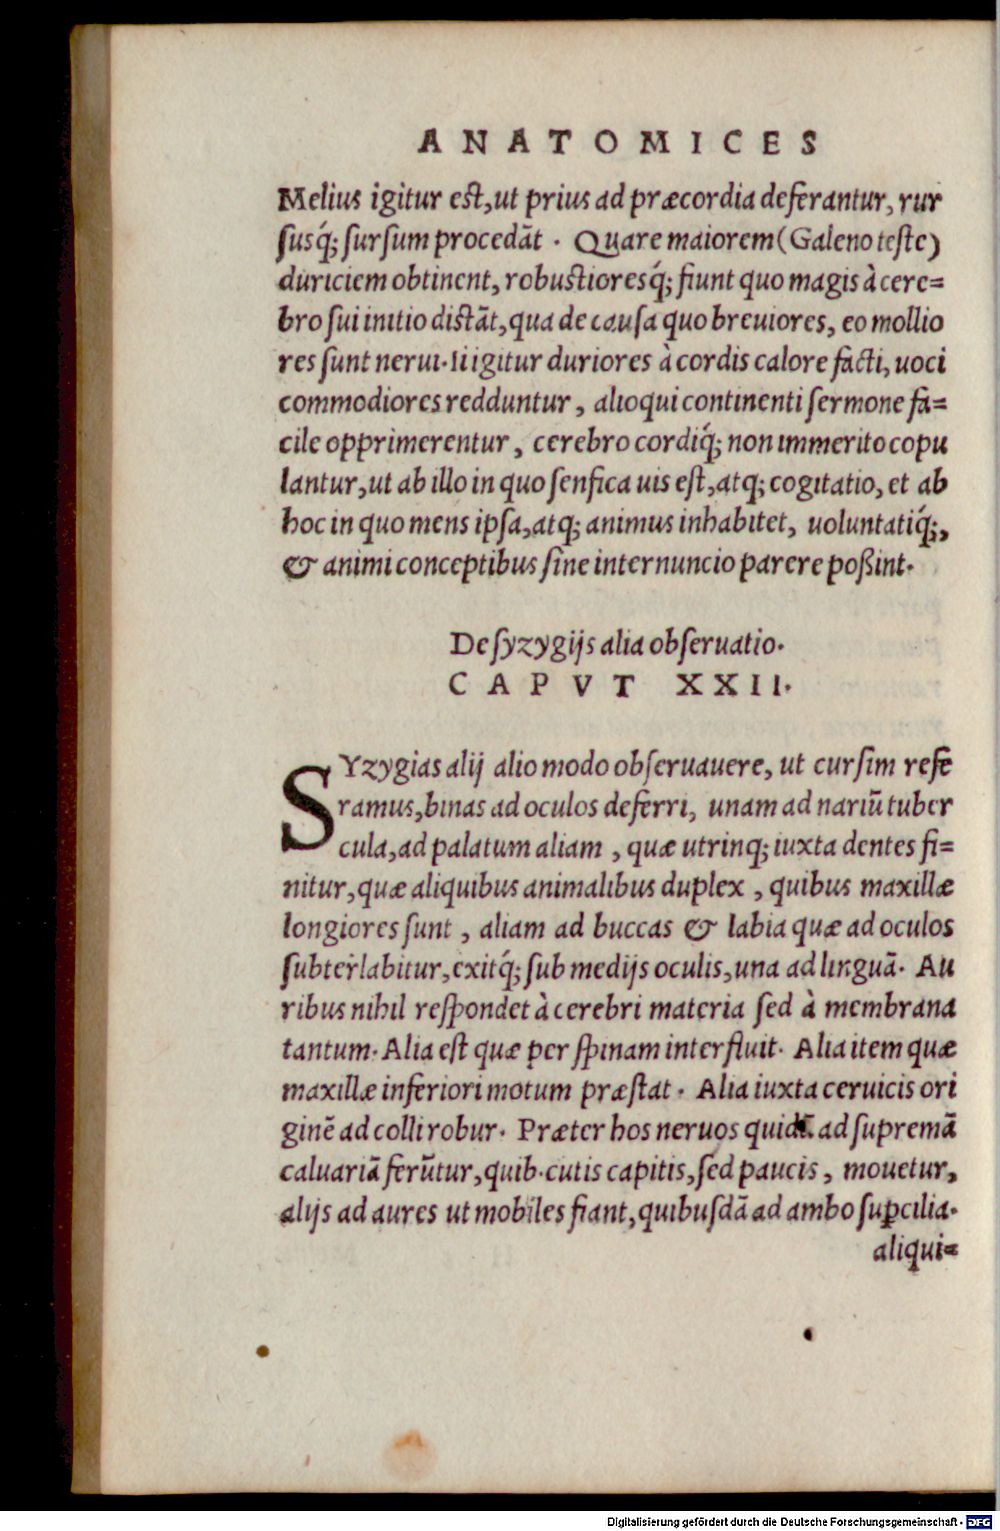 ANATOMICES
Melius igitur est, ut prius ad præcordia deferantur, rur
susq́; sursum procedãt . Quare maiorem (Galeno teste)
duriciem obtinent, robustioresq́; fiunt quo magis à cere=
bro sui initio distãt, qua de causa quo breuiores, eo mollio
res sunt nerui. Ii igitur duriores à cordis calore facti, uoci
commodiores redduntur , alioqui continenti sermone fa=
cile opprimerentur , cerebro cordiq́; non immerito copu
lantur, ut ab illo in quo senfica uis est, atq; cogitatio, et ab
hoc in quo mens ipsa, atq; animus inhabitet, uoluntatiq́;,
& animi conceptibus sine internuncio parere poßint.
De syzygijs alia obseruatio.
CAPVT XXII.
SYzygias alij alio modo obseruauere, ut cursim refe
ramus, binas ad oculos deferri, unam ad nariũ tuber
cula, ad palatum aliam , quæ utrinq; iuxta dentes fi=
nitur, quæ aliquibus animalibus duplex , quibus maxillæ
longiores sunt , aliam ad buccas & labia quæ ad oculos
subterlabitur, exitq́; sub medijs oculis, una ad linguã. Au
ribus nihil respondet à cerebri materia sed à membrana
tantum. Alia est quæ per spinam interfluit. Alia item quæ
maxillæ inferiori motum præstat . Alia iuxta ceruicis ori
ginẽ ad colli robur. Præter hos neruos quidã ad supremã
caluariã ferũtur, quib. cutis capitis, sed paucis , mouetur,
alijs ad aures ut mobiles fiant, quibusdã ad ambo suꝑcilia.
aliqui=
Digitalisierung gefördert durch die Deutsche Forschungsgemeinschaft - DFG